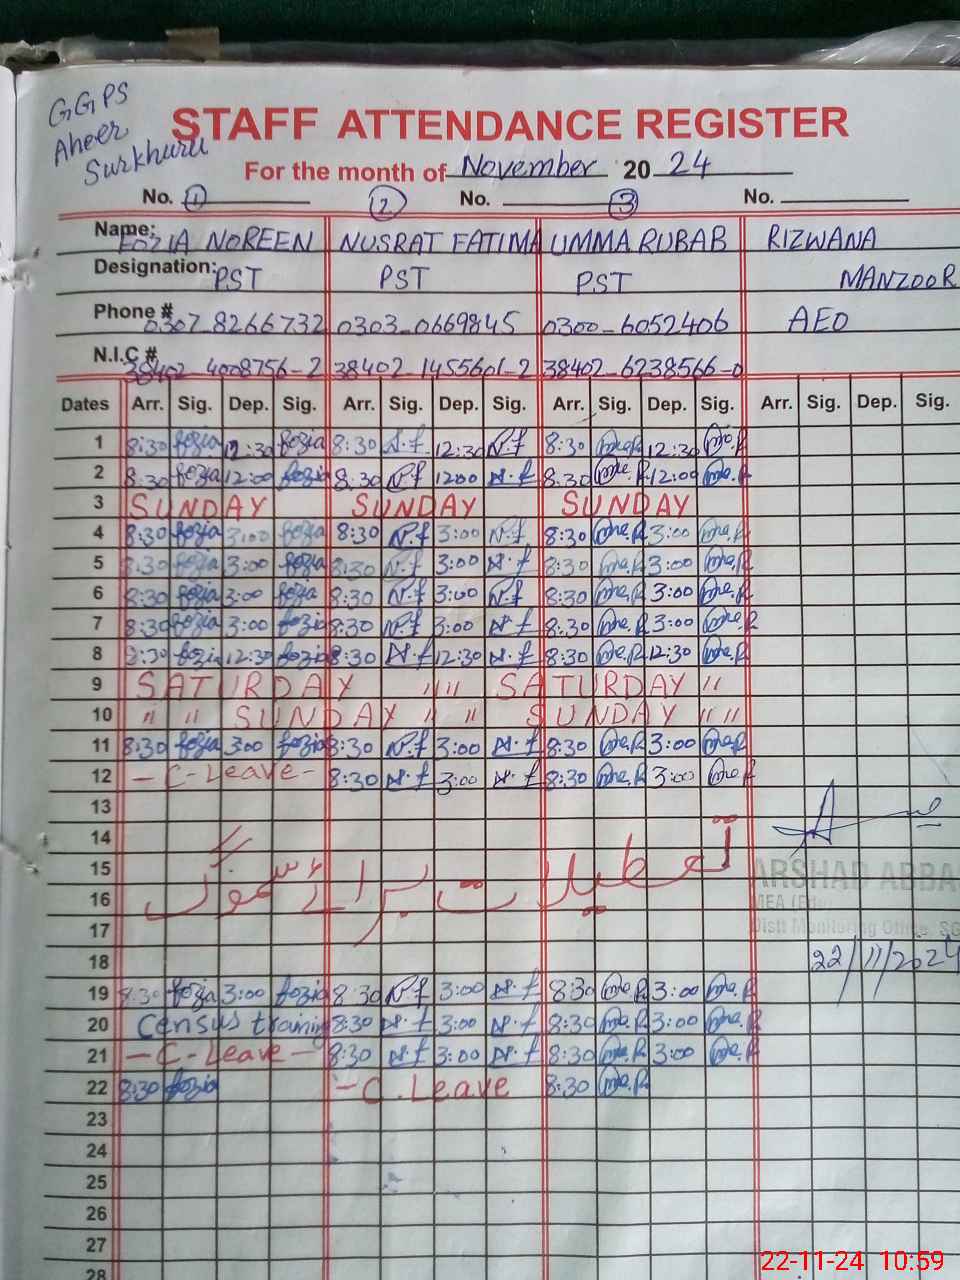 GGPS
Aheer
Surkhuru
STAFF ATTENDANCE REGISTER
For the month of November 20 24
No. 1 2 No. 3 No.
Name: FOZIA NOREEN NUSRAT FATIMA UMMA RUBAB RIZWANA
Designation: PST PST PST MANZOOR
Phone # 0307-8266732 0303-0669845 0300-6052406 AEO
N.I.C # 38402-4008756-2 38402-1455601-2 38402-6238566-0
Dates Arr. Sig. Dep. Sig. Arr. Sig. Dep. Sig. Arr. Sig. Dep. Sig. Arr. Sig. Dep. Sig.
1 8:30 fozia 12:30 fozia 8:30 N.f 12:30 N.f 8:30 12:30
2 8:30 fozia 12:00 fozia 8:30 N.f 1200 N.f 8:30 12:00
3 SUNDAY SUNDAY SUNDAY
4 8:30 fozia 3:00 fozia 8:30 N.f 3:00 N.f 8:30 3:00
5 8:30 fozia 3:00 fozia 8:30 N.f 3:00 N.f 8:30 3:00
6 8:30 fozia 3:00 fozia 8:30 N.f 3:00 N.f 8:30 3:00
7 8:30 fozia 3:00 fozia 8:30 N.f 3:00 N.f 8:30 3:00
8 8:30 fozia 12:30 fozia 8:30 N.f 12:30 N.f 8:30 12:30
9 SATURDAY " " SATURDAY "
10 " " SUNDAY " " SUNDAY " "
11 8:30 fozia 3:00 fozia 8:30 N.f 3:00 N.f 8:30 3:00
12 - C-Leave - 8:30 N.f 3:00 N.f 8:30 3:00
13
14
15 تعطیلات برائے سموگ
ARSHAD ABBA
16 MEA
17 Distt Monitoring Office, SG
18 22/11/2024
19 8:30 fozia 3:00 fozia 8:30 N.f 3:00 N.f 8:30 3:00
20 Census training 8:30 N.f 3:00 N.f 8:30 3:00
21 - C-Leave - 8:30 N.f 3:00 N.f 8:30 3:00
22 8:30 fozia - C.Leave 8:30
23
24
25
26
27
28
22-11-24 10:59